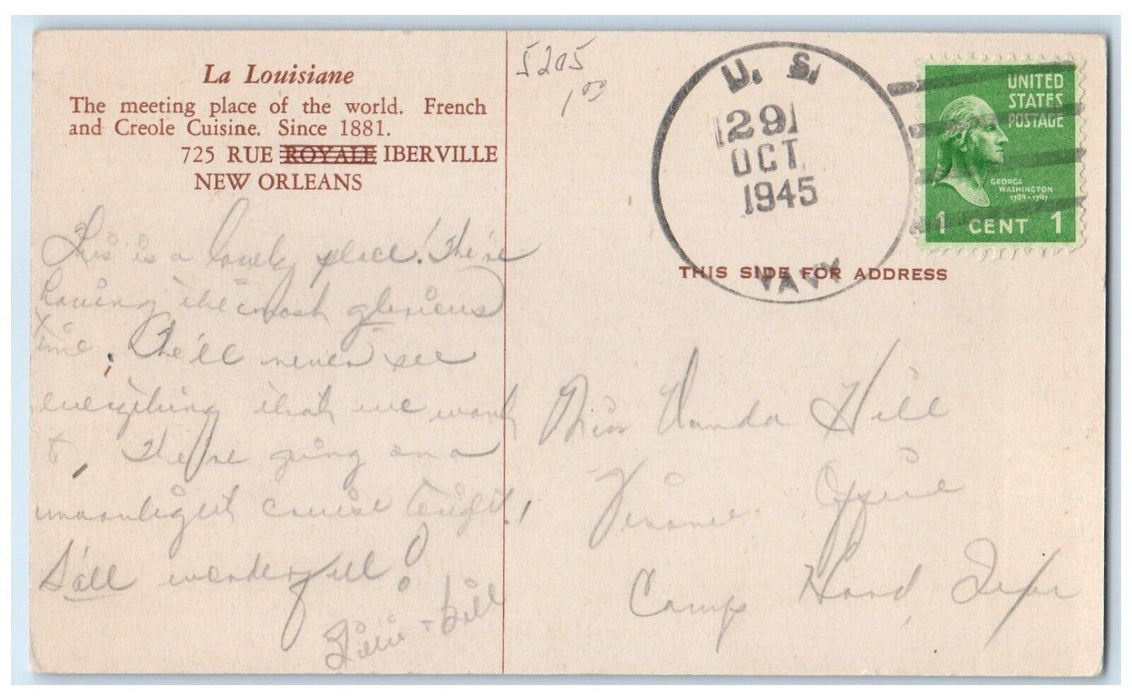 La Louisiane
The meeting place of the world. French
and Creole Cuisine. Since 1881.
725 RUE ROYALE IBERVILLE
NEW ORLEANS
This is a lovely place! We're
having the most glorious
time. We'll never see
everything that we want
to, We're going on a
moonlight cruise tonight,
S'all wonderful!
& Bill
5205
1.00
U. S.
29
OCT.
1945
NAVY
UNITED
STATES
POSTAGE
GEORGE
WASHINGTON
1789-1797
1 CENT 1
THIS SIDE FOR ADDRESS
Miss Wanda Hill
Finance Office
Camp Hood, Texas